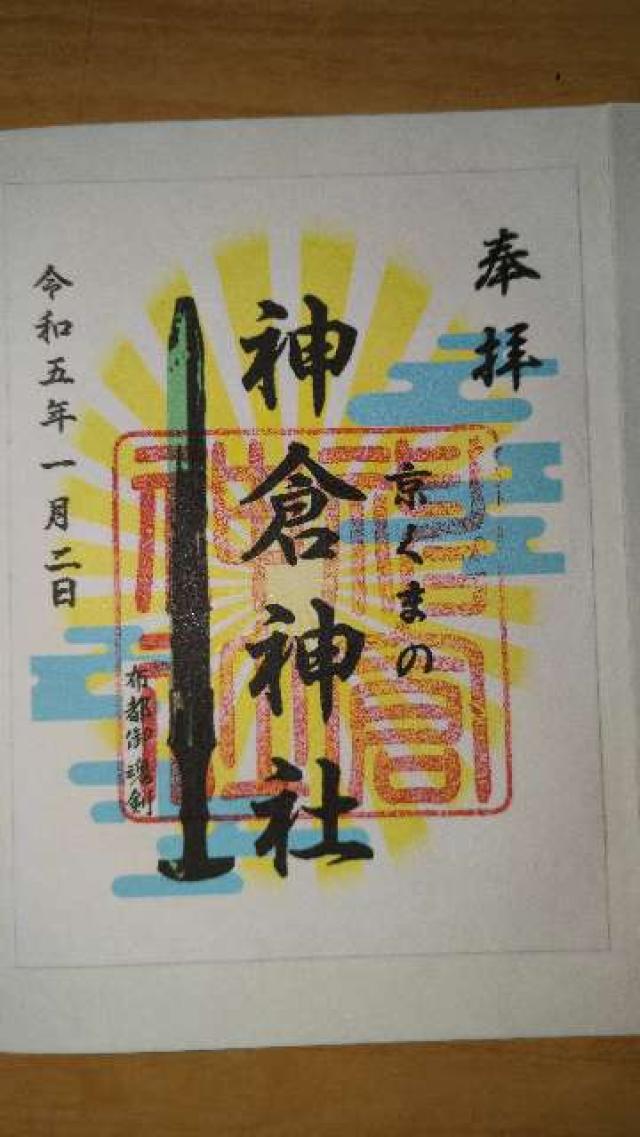 奉拝
京くまの
神倉神社
布都御魂剣
令和五年一月二日